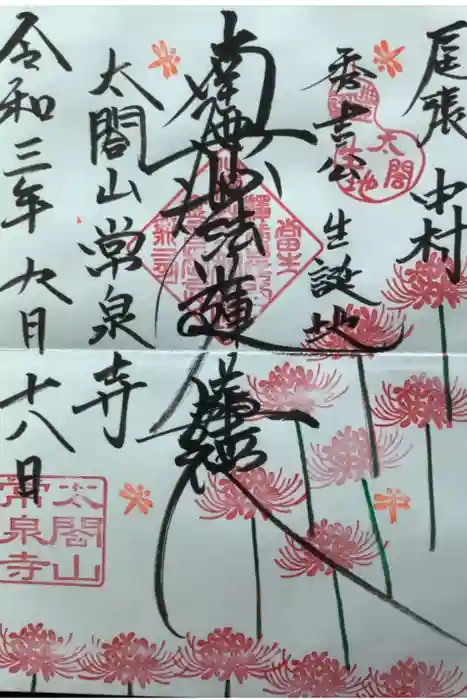 尾張中村
秀吉公生誕地
南無妙法蓮華経
太閤山常泉寺
令和三年九月十八日
太閤
生地
太閤山
常泉寺